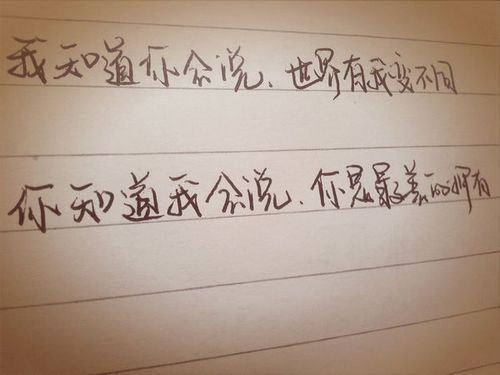 我知道你会说.世界有我变不同
你知道我会说.你是最美的拥有